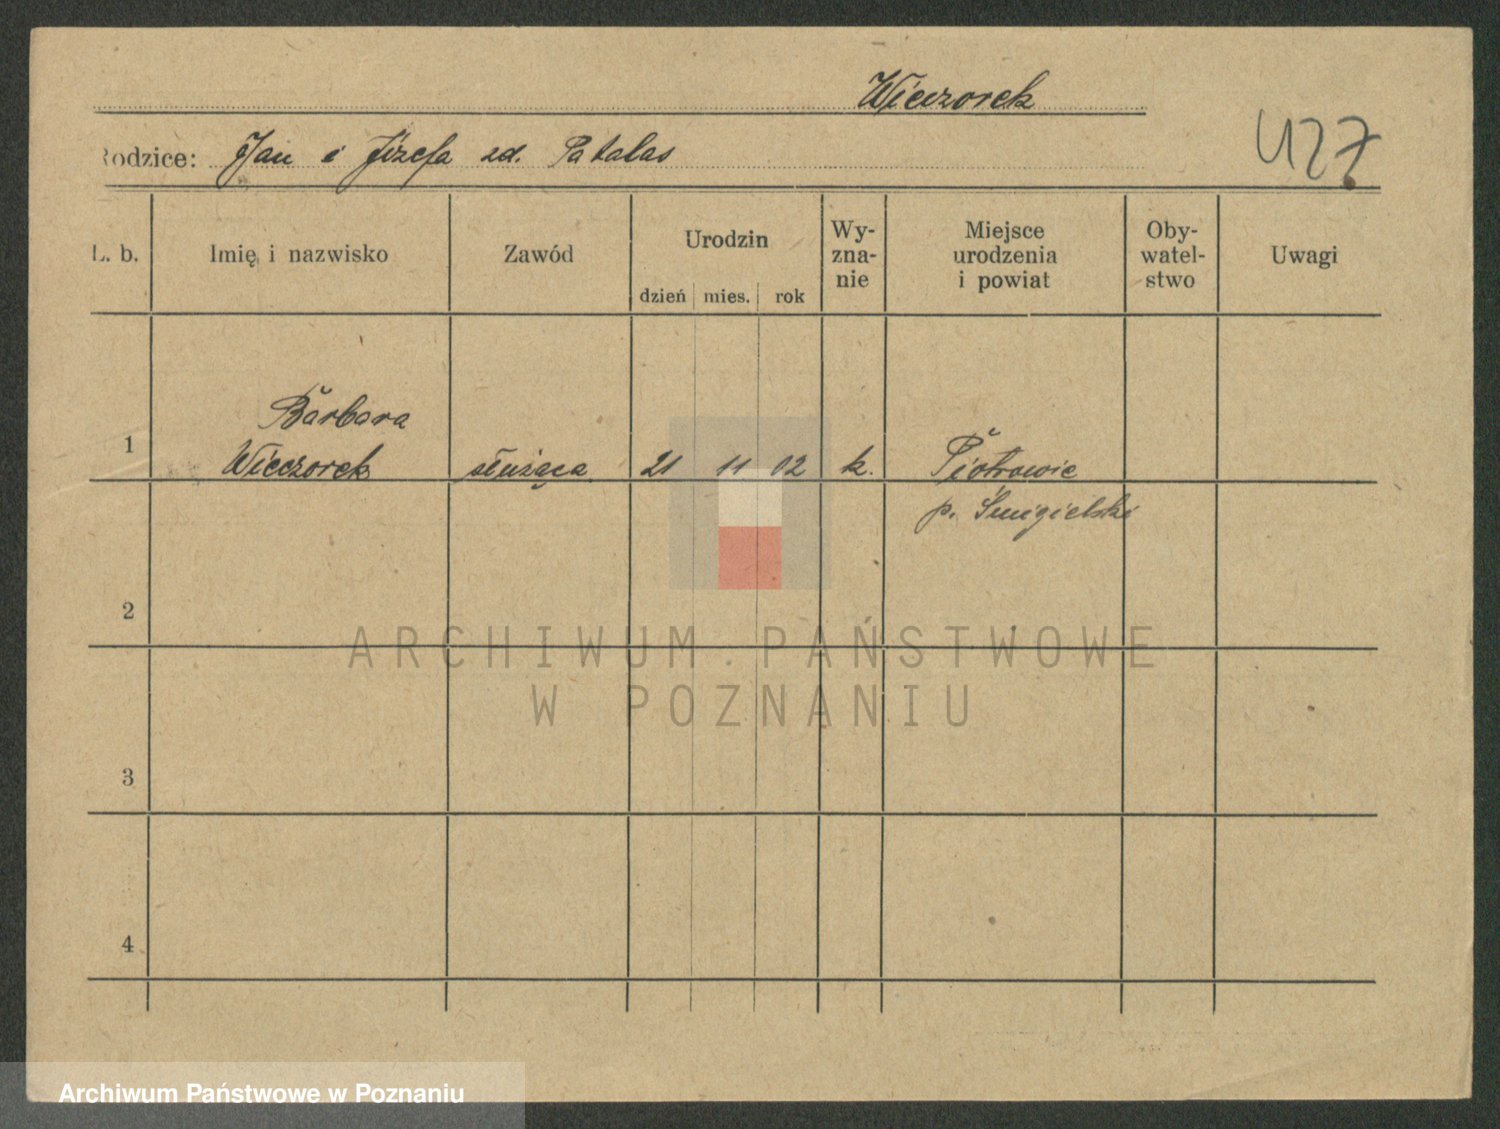 Wieczorek
Rodzice: Jan i Józefa zd. Patalas
427
L. b.
Imię i nazwisko
Zawód
Urodzin
dzień mies. rok
Wy-
zna-
nie
Miejsce
urodzenia
i powiat
Oby-
watel-
stwo
Uwagi
1
Barbara
Wieczorek
służąca
21 11 02
k.
Piotrowie
p. Śmigielski
2
3
4
ARCHIWUM PAŃSTWOWE
W POZNANIU
Archiwum Państwowe w Poznaniu